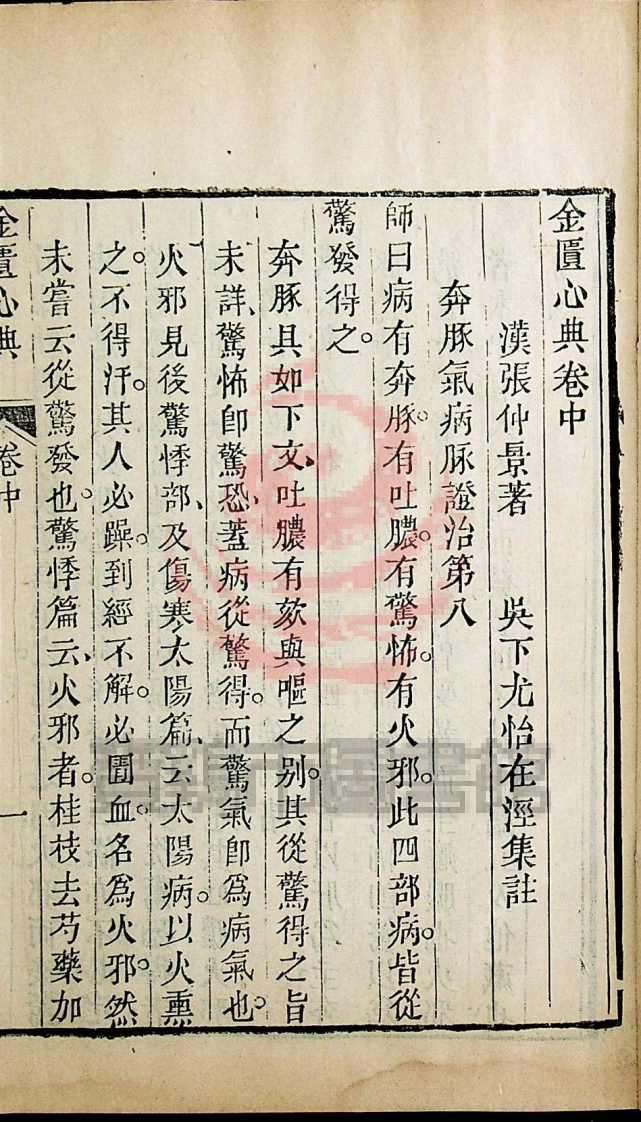 金匱心典卷中
漢張仲景著　吳下尤怡在涇集註
奔豚氣病脉證治第八
師曰病有奔豚。有吐膿。有驚怖。有火邪。此四部病。皆從
驚發得之。
奔豚具如下文、吐膿有欬與嘔之别。其從驚得之旨
未詳、驚怖卽驚恐、蓋病從驚得。而驚氣卽爲病氣也。
火邪見後驚悸部、及傷寒太陽篇、云太陽病。以火熏
之。不得汗。其人必躁。到經不解。必圊血。名爲火邪。然
未嘗云從驚發也。驚悸篇云、火邪者。桂枝去芍藥加
金匱心典
卷中
一